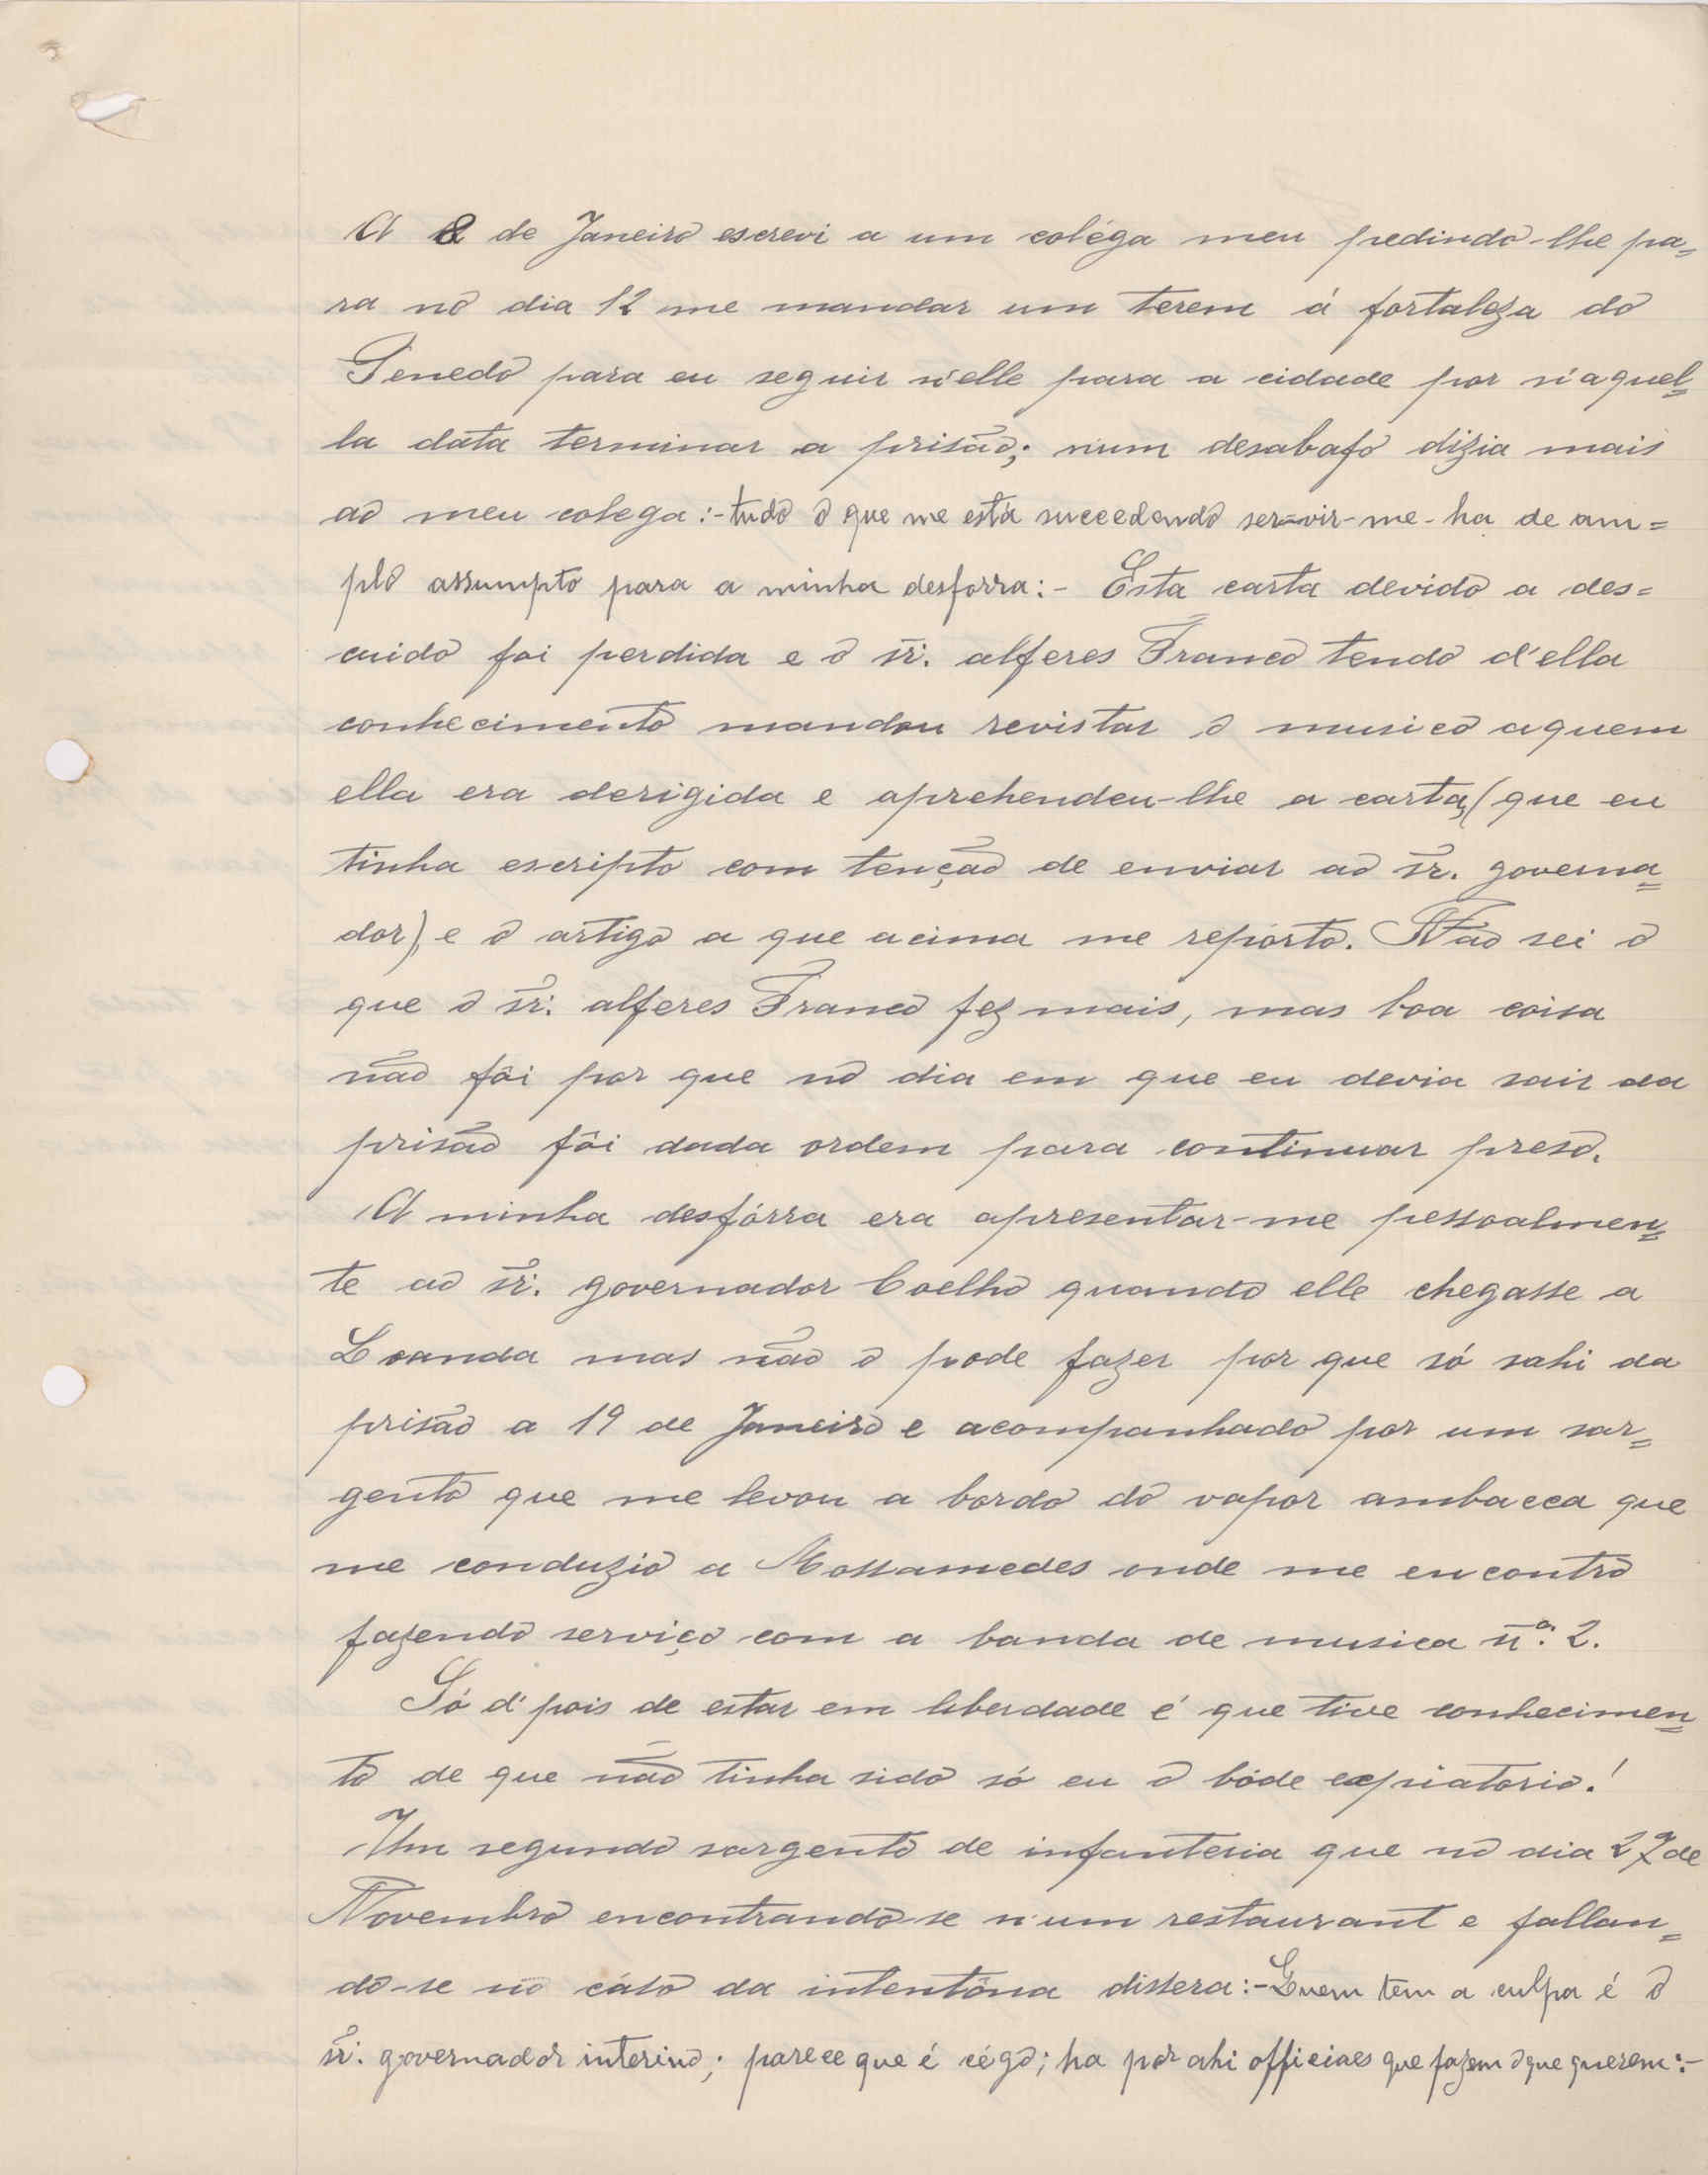 A 8 de Janeiro escrevi a um coléga meu pedindo-lhe pa=
ra no dia 12 me mandar um terem á fortaleza do
Penedo para eu seguir n'elle para a cidade por n'aquel=
la data terminar a prisão; num desabafo dizia mais
ao meu colega:-tudo o que me está succedendo servir-me-ha de am=
plo assumpto para a minha desforra:- Esta carta devido a des=
cuido foi perdida e o sr. alferes Franco tendo d'ella
conhecimento mandou revistar o musico aquem
ella era derigida e aprehendeu-lhe a carta, (que eu
tinha escripto com tenção de enviar ao sr. governa=
dor) e o artigo a que acima me reporto. Não sei o
que o sr. alferes Franco fez mais, mas boa coisa
não fôi por que no dia em que eu devia sair da
prisão fôi dada ordem para continuar preso.
A minha desfórra era apresentar-me pessoalmen=
te ao sr. governador Coelho quando elle chegasse a
Loanda mas não o pode fazer por que só sahi da
prisão a 19 de Janeiro e acompanhado por um sar=
gento que me levou a bordo do vapor ambacca que
me conduzio a Mossamedes onde me encontro
fazendo serviço com a banda de musica nº. 2.
Só d'pois de estar em liberdade é que tive conhecimen=
to de que não tinha sido só eu o bóde expiatorio!
Um segundo sargento de infanteria que no dia 27 de
Novembro encontrando-se n'um restaurant e fallan=
do-se no cáso da intentôna dissera:-Quem tem a culpa é o
sr. governador interino; parece que é cégo; ha por ahi officiaes que fazem o que querem:-